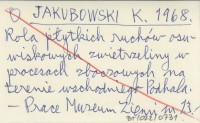 JAKUBOWSKI K. 1968.
Rola płytkich ruchów osu-
wiskowych zwietrzeliny w
procesach zboczowych na
terenie wschodniego Podhala.
– Prace Muzeum Ziemi nr 13.